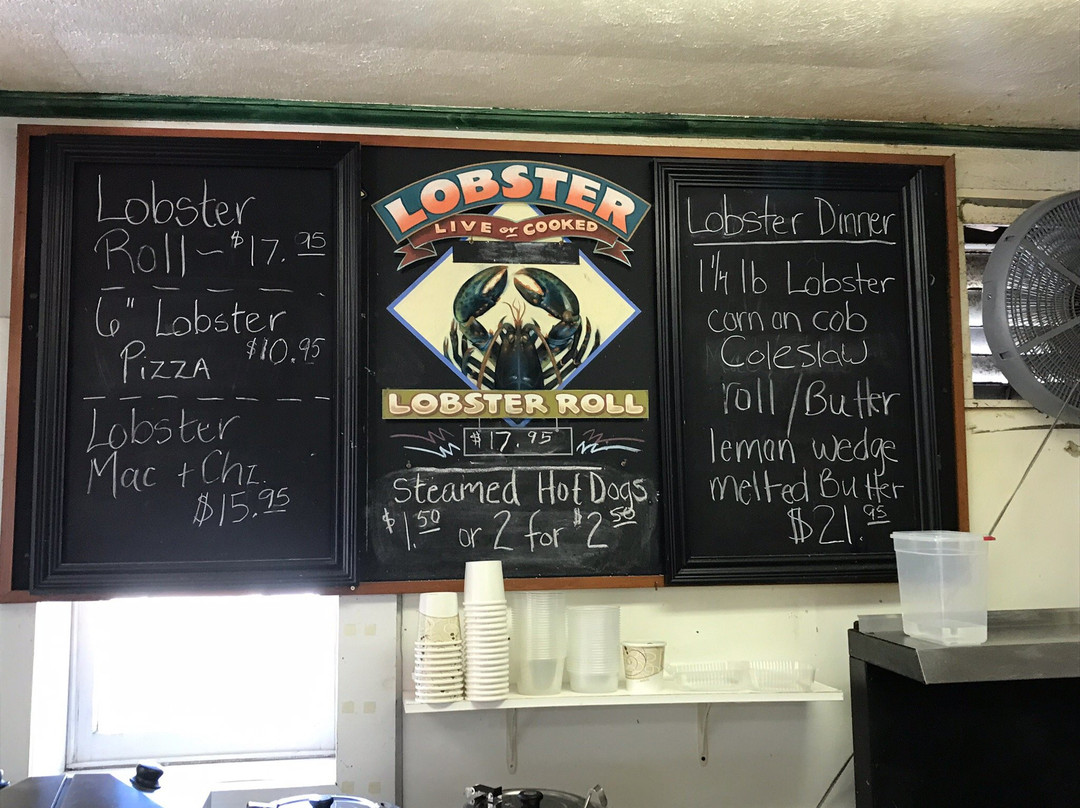 Lobster
Roll - $17.95
6" Lobster
Pizza $10.95
Lobster
Mac + Chz.
$15.95
LOBSTER
LIVE or COOKED
LOBSTER ROLL
$17.95
Steamed Hot Dogs
$1.50 or 2 for $2.50
Lobster Dinner
1 1/4 lb Lobster
corn on cob
Coleslaw
roll/Butter
lemon wedge
melted Butter
$21.95